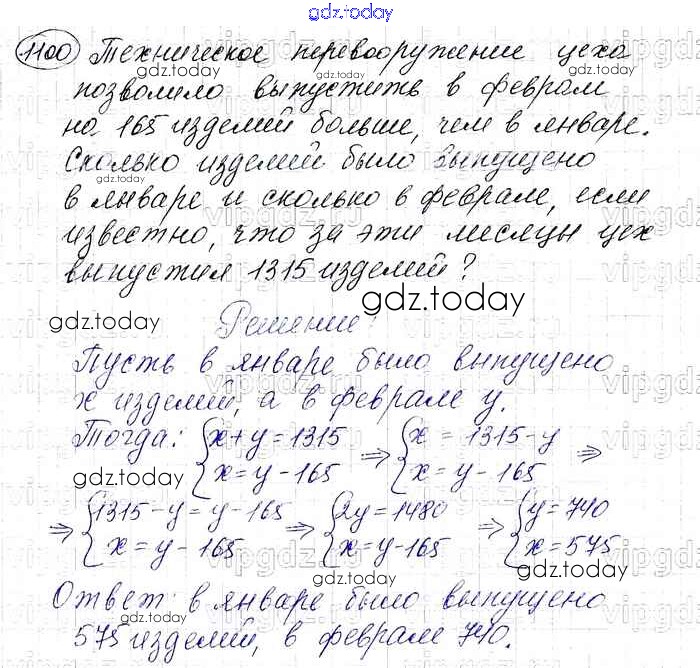 gdz.today
1100 Техническое перевооружение цеха
позволило выпустить в феврале
на 165 изделий больше, чем в январе.
Сколько изделий было выпущено
в январе и сколько в феврале, если
известно, что за эти месяцы цех
выпустил 1315 изделий?
Решение:
Пусть в январе было выпущено
x изделий, а в феврале y.
Тогда: {x+y=1315 x=y-165 ⇒ {x=1315-y x=y-165 ⇒
⇒ {1315-y=y-165 x=y-165 ⇒ {2y=1480 x=y-165 ⇒ {y=740 x=575
Ответ: в январе было выпущено
575 изделий, в феврале 740.
gdz.today